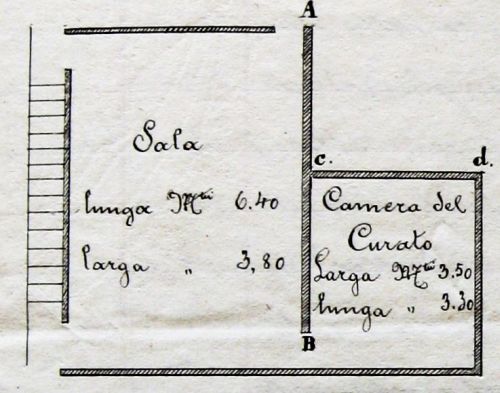 A
Sala
lunga Mtri 6.40
larga „ 3,80
c. d.
Camera del
Curato
Larga Mtri 3.50
lunga „ 3.30
B